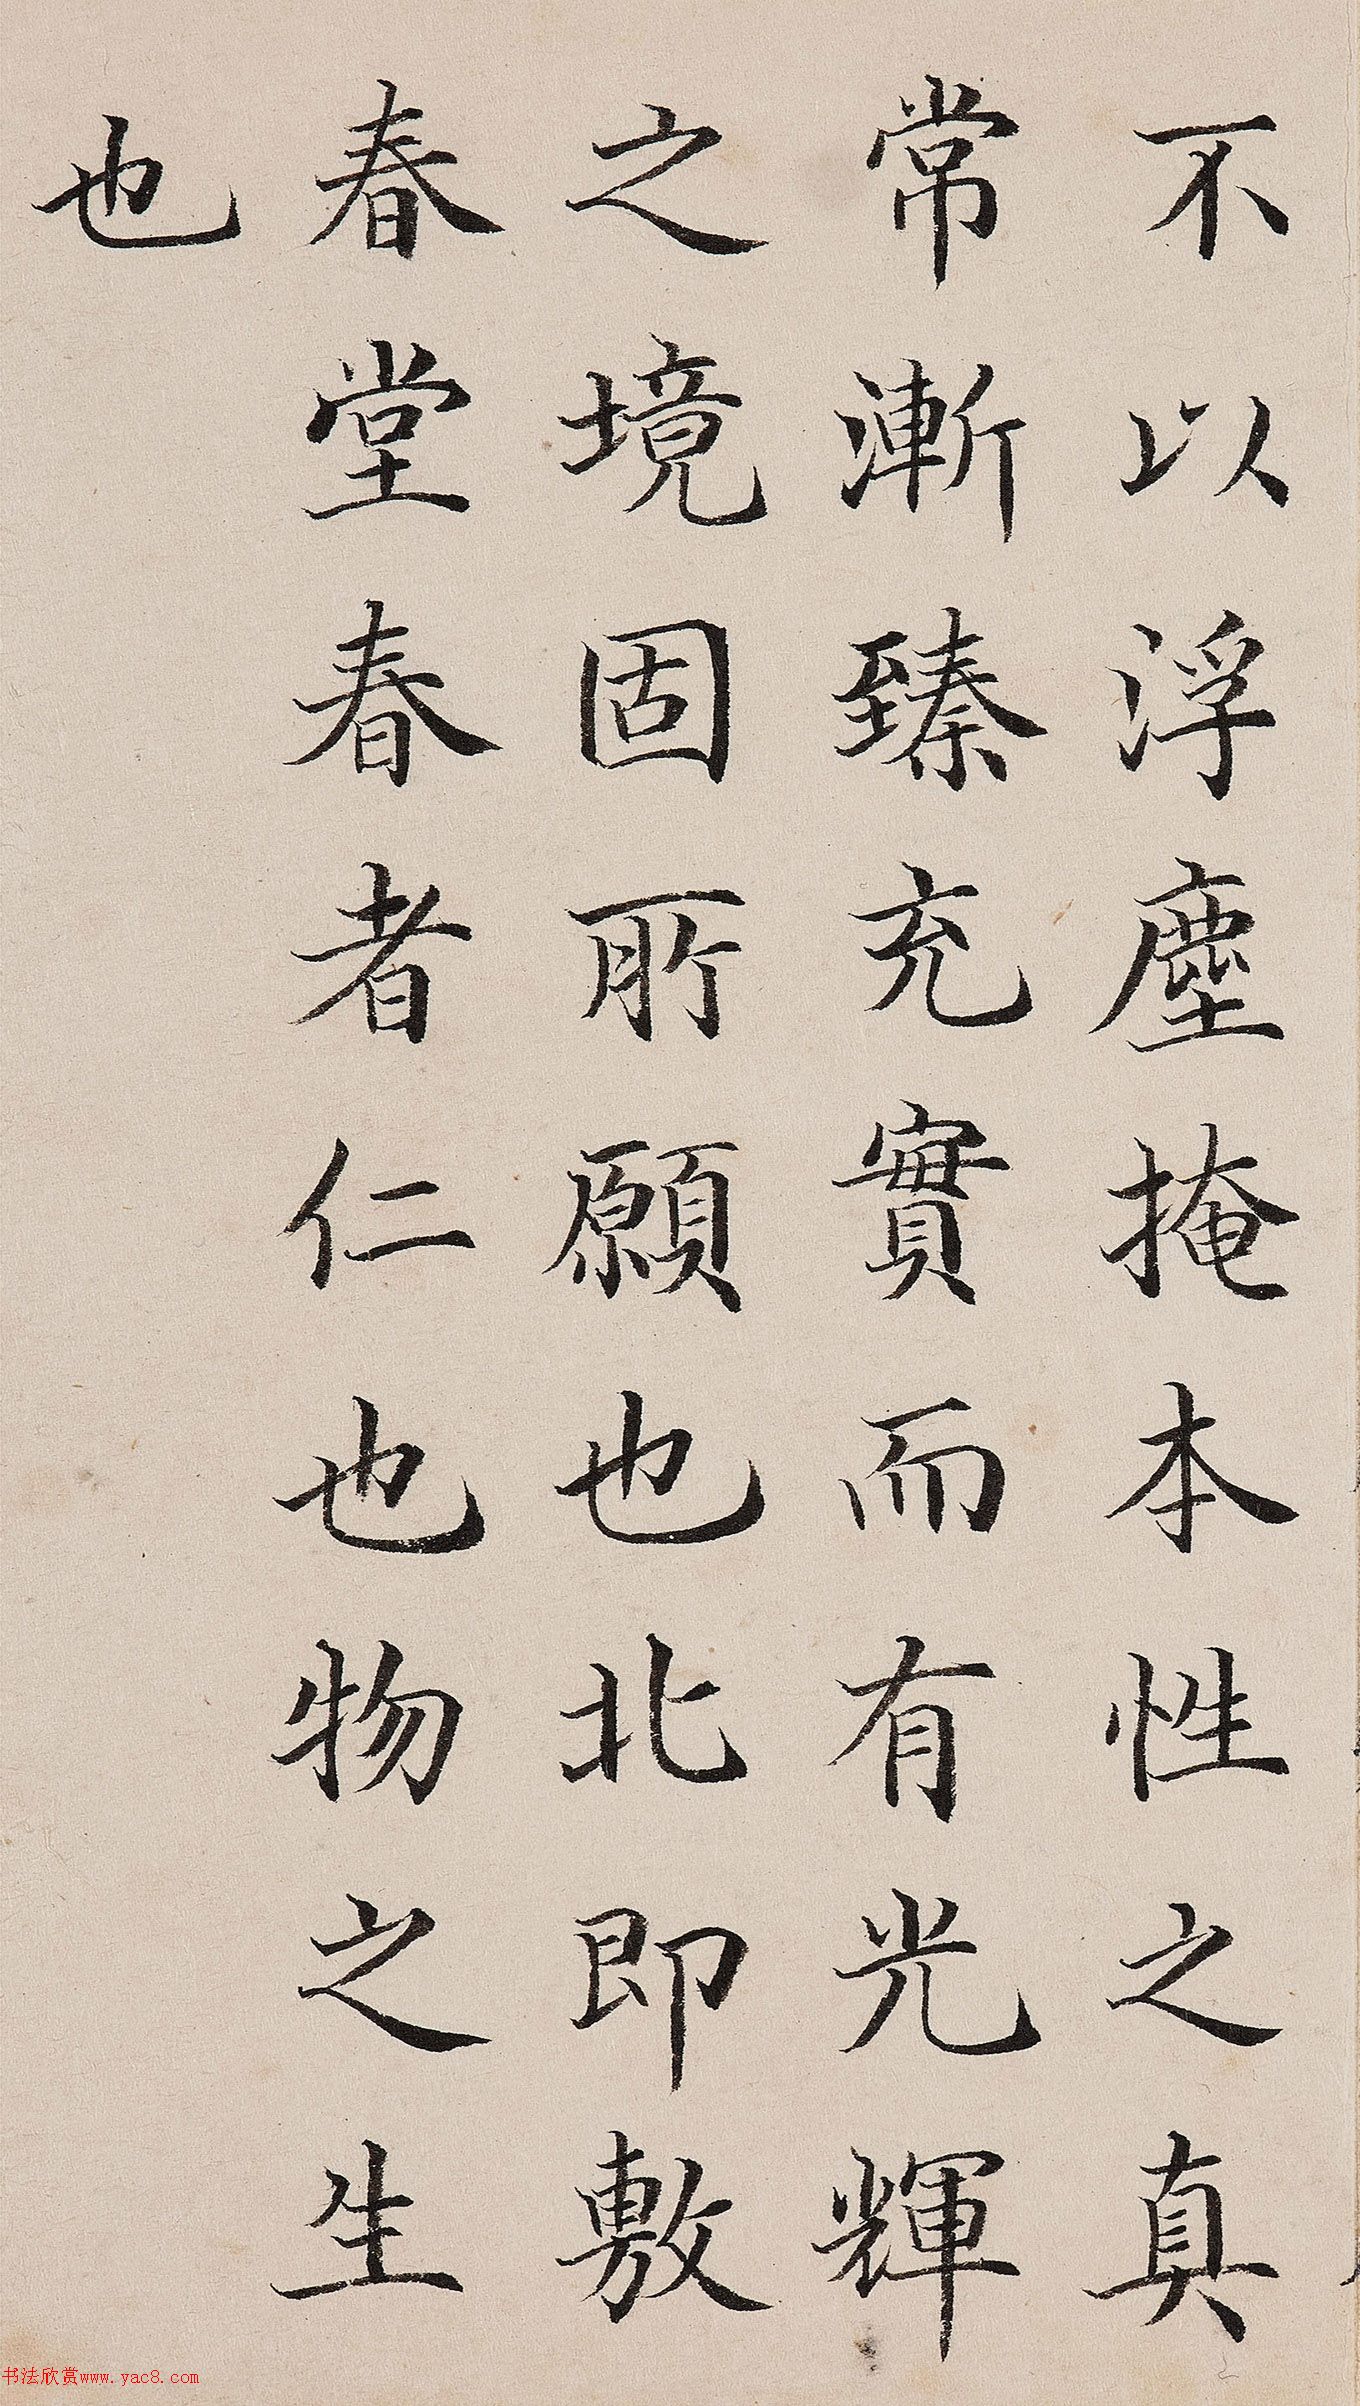 不以浮塵掩本性之真
常漸臻充實而有光輝
之境固所願也北即敷
春堂春者仁也物之生
也
书法欣赏www.yac8.com